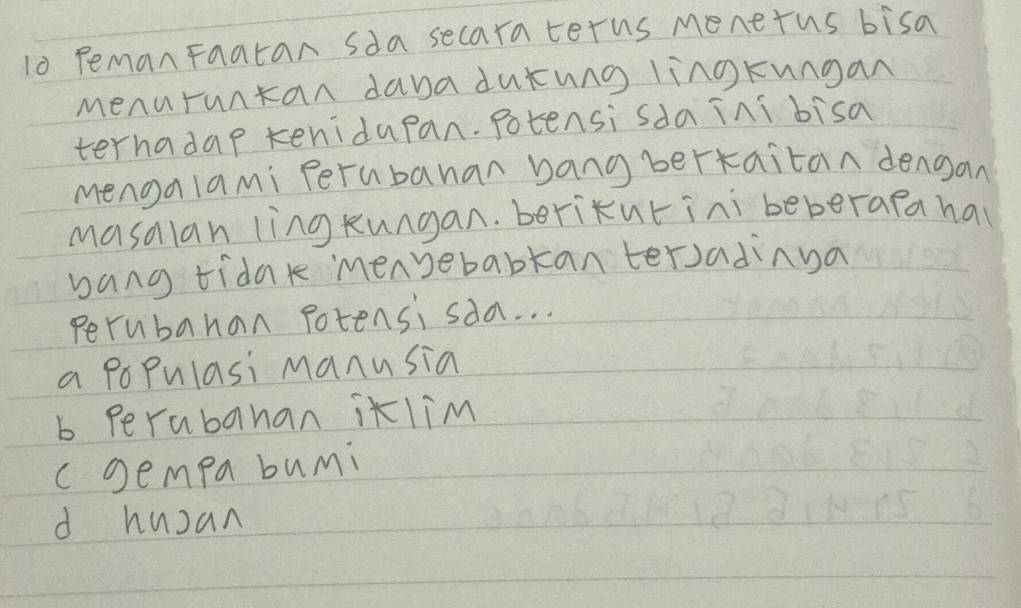 10 Pemanfaatan sda secara terus menerus bisa
menurunkan daya dukung lingkungan
terhadap kehidupan. Potensi sda ini bisa
mengalami Perubahan yang berkaitan dengan
masalah lingkungan. berikut ini beberapa hal
yang tidak menyebabkan terjadinya
Perubahan Potensi sda...
a Populasi manusia
b Perubahan iklim
c gempa bumi
d hujan